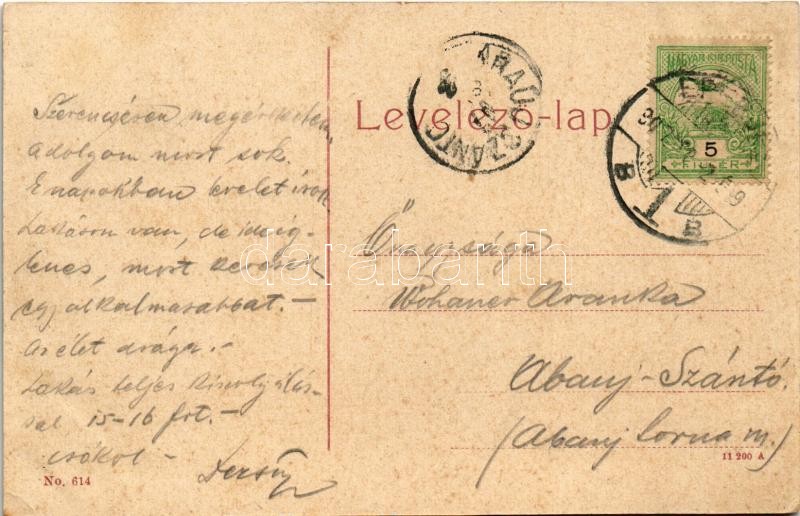 Szerencsésen megérkeztem,
a dolgom most sok.
E napokban levelet írok
Lakásom van, de ideig-
lenes, most keresek
egy alkalmasabbat. –
Az élet drága. –
Lakás teljes kiszolgálás-
sal 15-16 frt. –
csókol –
No. 614
Levelező-lap
MAGYAR KIR. POSTA
5
FILLÉR
B
B
Őnagysága
Wohaner Aranka
Abauj-Szántó.
(Abauj Torna m.)
11 200 A
darabanth